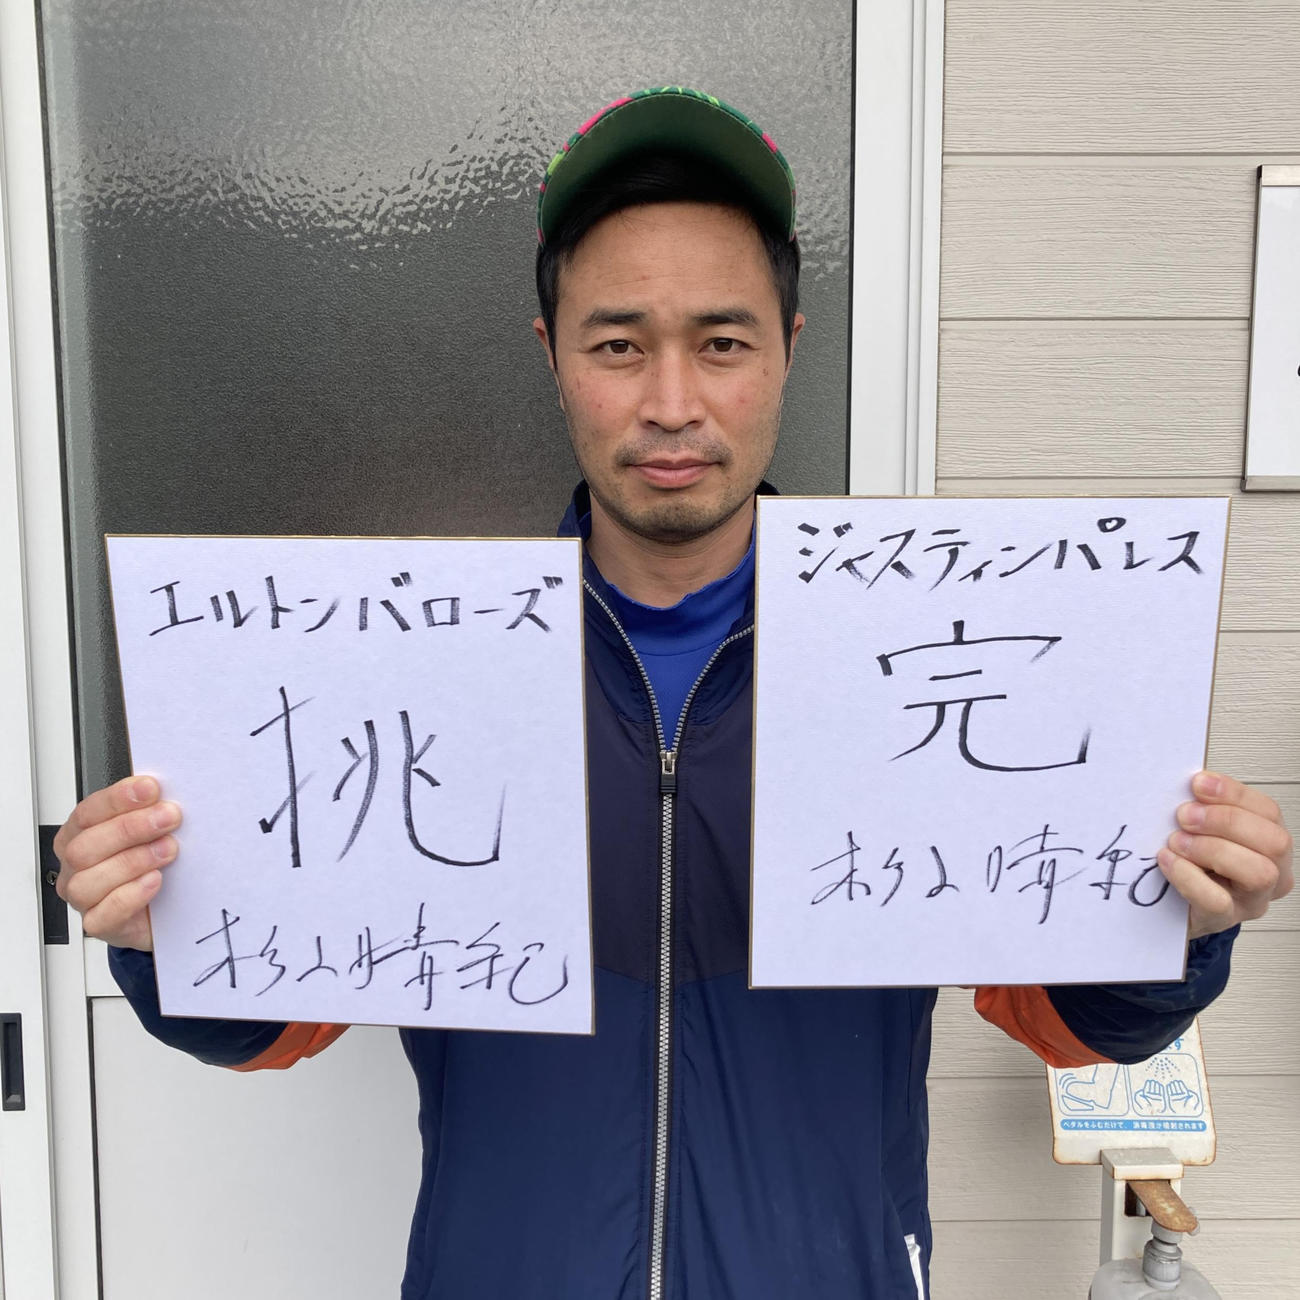 エルトンバローズ
挑
杉山晴紀
ジャスティンパレス
完
杉山晴紀
ペダルをふむだけで、消毒液が噴射されます